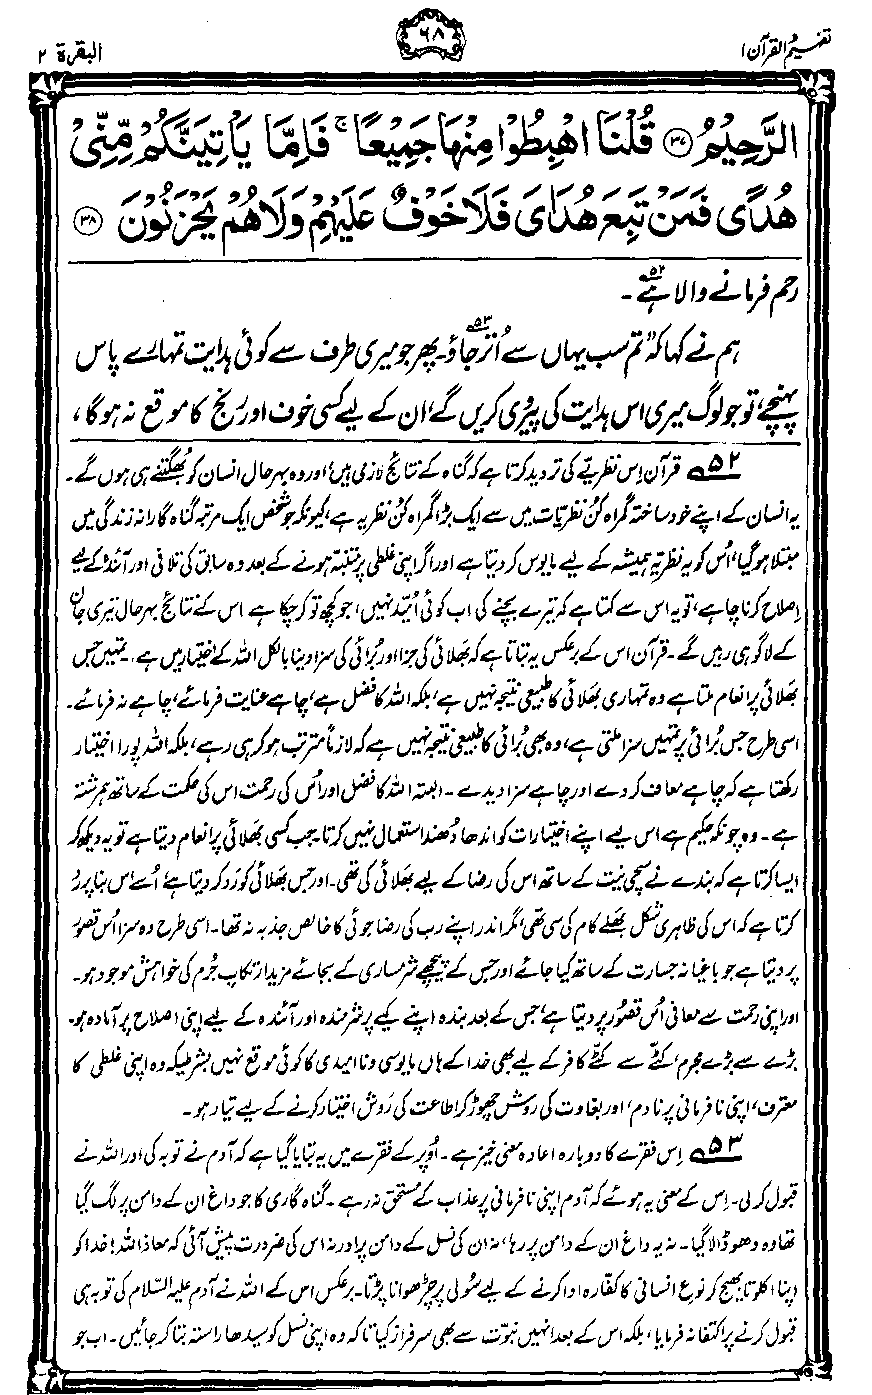 تفہیم القرآن ۱
۶۸
البقرۃ ۲
الرَّحِيْمُ ۝۳۷ قُلْنَا اهْبِطُوْا مِنْهَا جَمِيْعًا ۚ فَاِمَّا يَاْتِيَنَّكُمْ مِّنِّيْ
هُدًى فَمَنْ تَبِعَ هُدَايَ فَلَا خَوْفٌ عَلَيْهِمْ وَلَا هُمْ يَحْزَنُوْنَ ۝۳۸
رحم فرمانے والا ہے۵۲۔
ہم نے کہا کہ ”تم سب یہاں سے اُتر جاؤ۵۳۔ پھر جو میری طرف سے کوئی ہدایت تمہارے پاس
پہنچے، تو جو لوگ میری اس ہدایت کی پیروی کریں گے، ان کے لیے کسی خوف اور رنج کا موقع نہ ہوگا،
۵۲ قرآن اِس نظریے کی تردید کرتا ہے کہ گناہ کے نتائج لازمی ہیں، اور وہ بہرحال انسان کو بھگتنے ہی ہوں گے۔
یہ انسان کے اپنے خود ساختہ گمراہ کُن نظریات میں سے ایک بڑا گمراہ کُن نظریہ ہے، کیونکہ جو شخص ایک مرتبہ گناہ گارانہ زندگی میں
مبتلا ہو گیا، اُس کو یہ نظریہ ہمیشہ کے لیے مایوس کر دیتا ہے اور اگر اپنی غلطی پر متنبّہ ہونے کے بعد وہ سابق کی تلافی اور آئندہ کے لیے
اصلاح کرنا چاہے، تو یہ اس سے کہتا ہے کہ تیرے بچنے کی اب کوئی اُمید نہیں، جو کچھ تو کر چکا ہے اس کے نتائج بہرحال تیری جان
کے لاگو ہی رہیں گے۔ قرآن اس کے برعکس یہ بتاتا ہے کہ بھلائی کی جزا اور بُرائی کی سزا دینا بالکل اللہ کے اختیار میں ہے۔ تمہیں جس
بھلائی پر انعام ملتا ہے وہ تمہاری بھلائی کا طبیعی نتیجہ نہیں ہے، بلکہ اللہ کا فضل ہے، چاہے عنایت فرمائے، چاہے نہ فرمائے۔
اسی طرح جس بُرائی پر تمہیں سزا ملتی ہے، وہ بھی بُرائی کا طبیعی نتیجہ نہیں ہے کہ لازماً مترتب ہو کر ہی رہے، بلکہ اللہ پورا اختیار
رکھتا ہے کہ چاہے معاف کر دے اور چاہے سزا دیدے۔ البتہ اللہ کا فضل اور اُس کی رحمت اس کی حکمت کے ساتھ ہم رشتہ
ہے۔ وہ چونکہ حکیم ہے اس لیے اپنے اختیارات کو اندھا دُھند استعمال نہیں کرتا۔ جب کسی بھلائی پر انعام دیتا ہے تو یہ دیکھ کر
ایسا کرتا ہے کہ بندے نے سچی نیت کے ساتھ اس کی رضا کے لیے بھلائی کی تھی۔ اور جس بھلائی کو رَد کر دیتا ہے، اُسے اس بنا پر رد
کرتا ہے کہ اس کی ظاہری شکل بھلے کام کی سی تھی، مگر اندر اپنے رب کی رضا جوئی کا خالص جذبہ نہ تھا۔ اسی طرح وہ سزا اُس قصور
پر دیتا ہے جو باغیانہ جسارت کے ساتھ کیا جائے اور جس کے پیچھے شرمساری کے بجائے مزید ارتکابِ جُرم کی خواہش موجود ہو۔
اور اپنی رحمت سے معافی اُس قصور پر دیتا ہے، جس کے بعد بندہ اپنے کیے پر شرمندہ اور آئندہ کے لیے اپنی اصلاح پر آمادہ ہو۔
بڑے سے بڑے مجرم، کٹّے سے کٹّے کافر کے لیے بھی خدا کے ہاں مایوسی و ناامیدی کا کوئی موقع نہیں بشرطیکہ وہ اپنی غلطی کا
معترف، اپنی نافرمانی پر نادم، اور بغاوت کی روش چھوڑ کر اطاعت کی رَوش اختیار کرنے کے لیے تیار ہو۔
۵۳ اِس فقرے کا دوبارہ اعادہ معنی خیز ہے۔ اُوپر کے فقرے میں یہ بتایا گیا ہے کہ آدم نے توبہ کی اور اللہ نے
قبول کر لی۔ اِس کے معنی یہ ہوئے کہ آدم اپنی نافرمانی پر عذاب کے مستحق نہ رہے۔ گناہ گاری کا جو داغ ان کے دامن پر لگ گیا
تھا وہ دھو ڈالا گیا۔ نہ یہ داغ ان کے دامن پر رہا، نہ ان کی نسل کے دامن پر اور نہ اس کی ضرورت پیش آئی کہ معاذ اللہ! خدا کو
اپنا اکلوتا بھیج کر نوعِ انسانی کا کفّارہ ادا کرنے کے لیے سُولی پر چڑھوانا پڑتا۔ برعکس اس کے اللہ نے آدم علیہ السّلام کی توبہ ہی
قبول کرنے پر اکتفا نہ فرمایا، بلکہ اس کے بعد انہیں نبوّت سے بھی سرفراز کیا تاکہ وہ اپنی نسل کو سیدھا راستہ بتا کر جائیں۔ اب جو